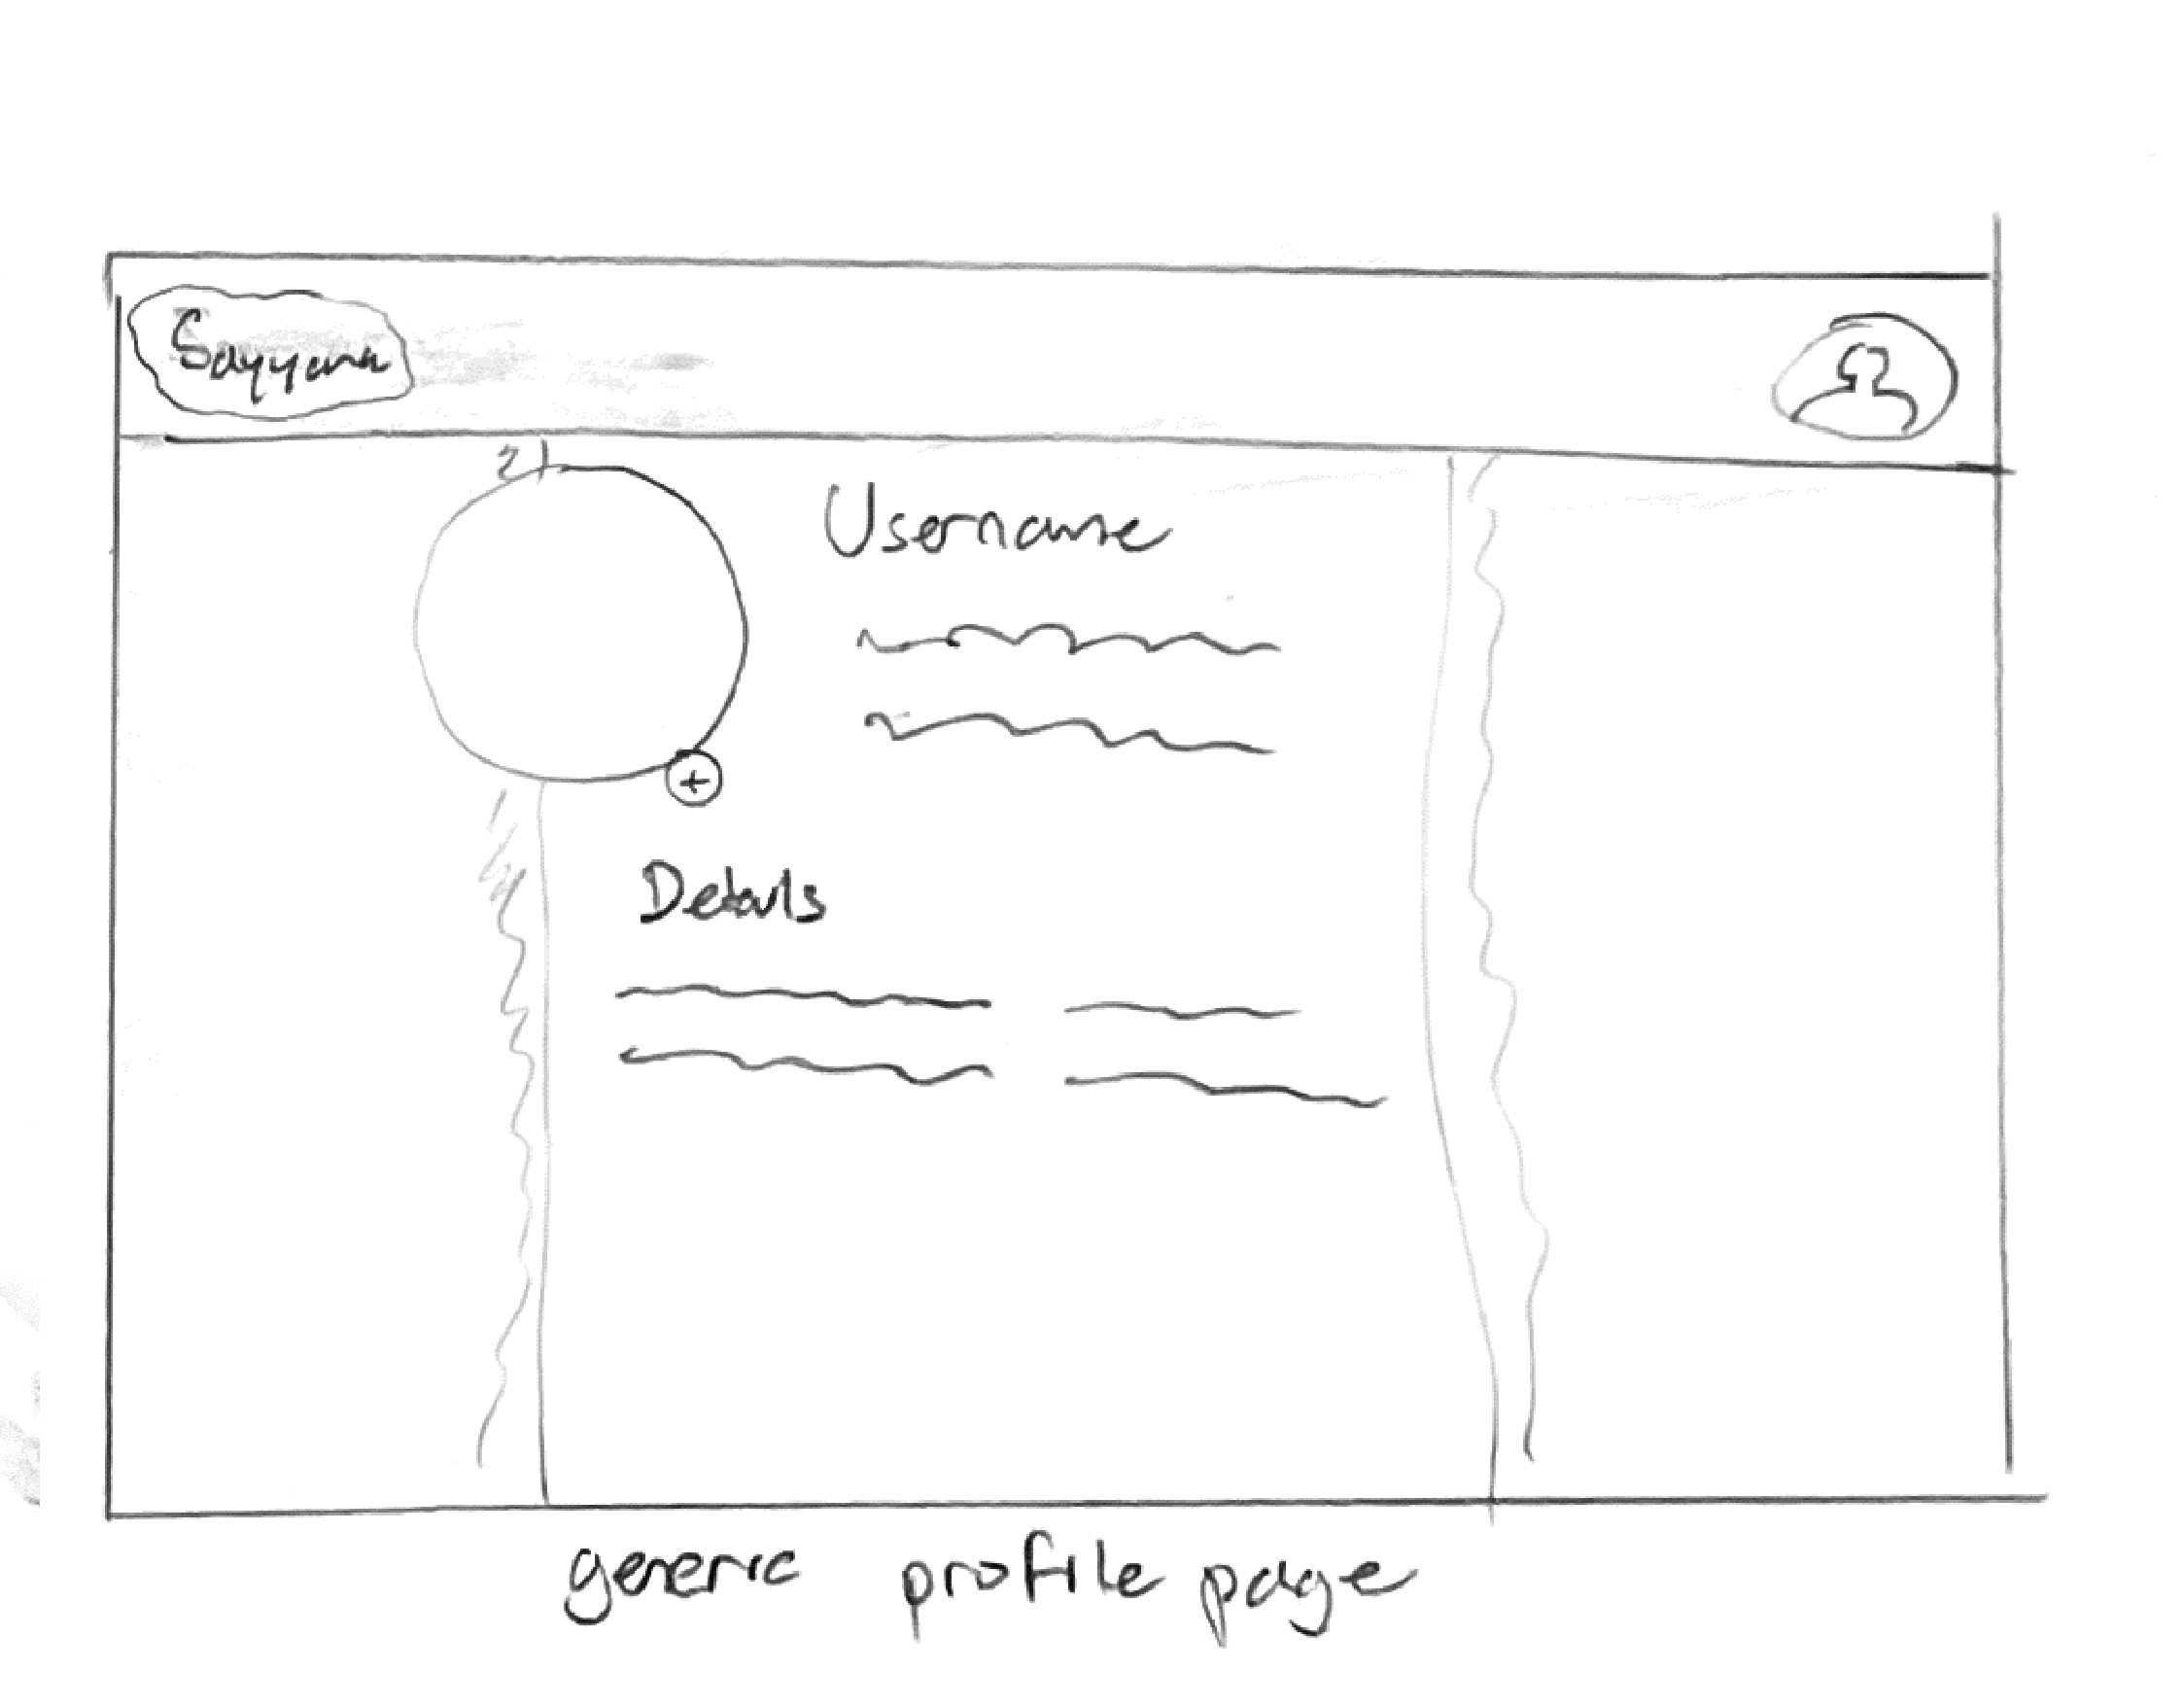 Sayyara
Username
+
Details
generic profile page